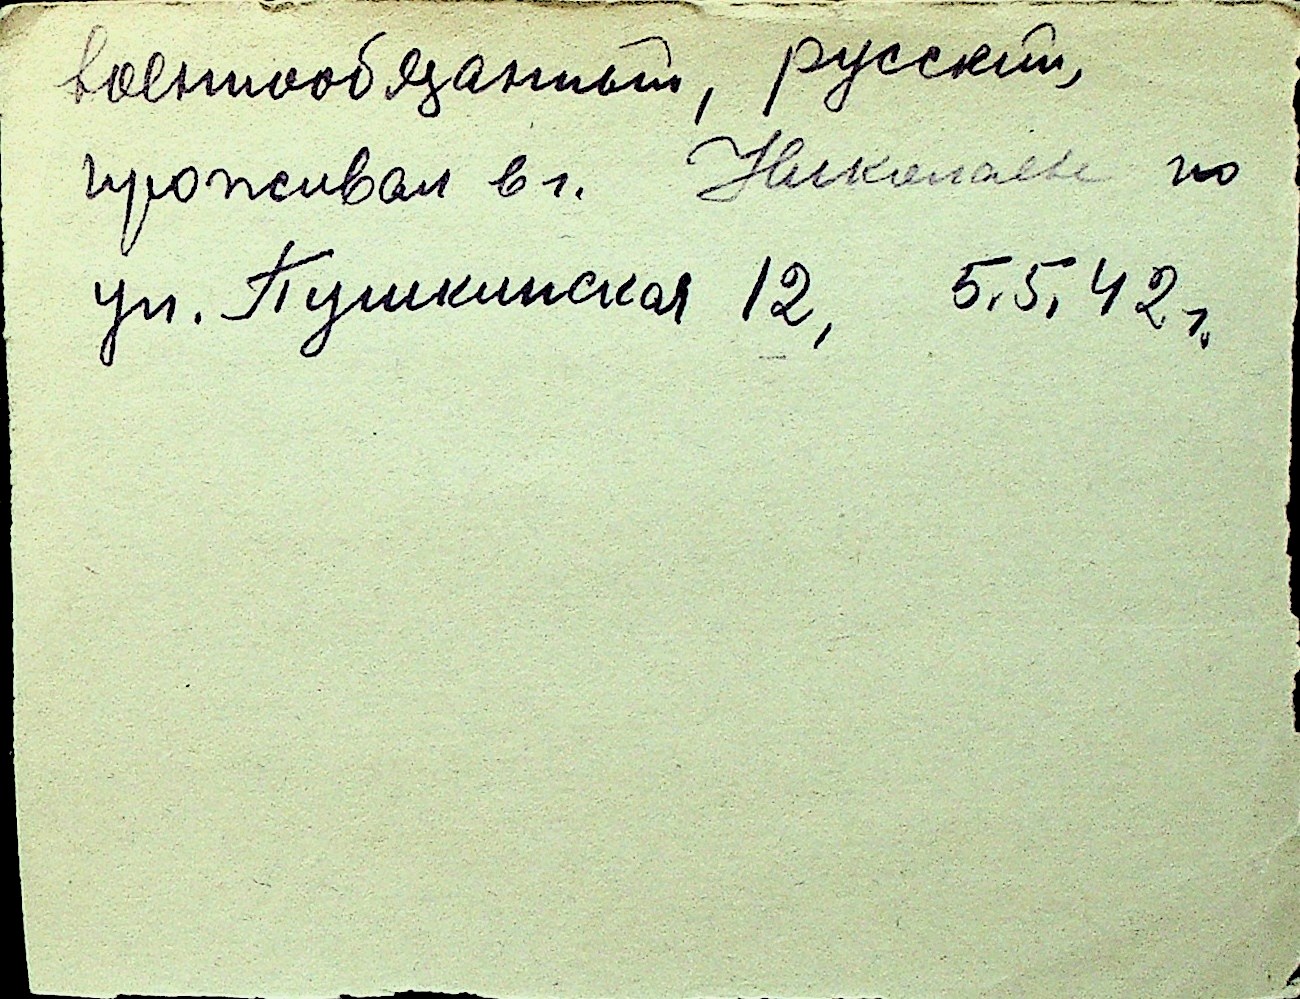 военнообязанный, русский,
проживал в г. Николаеве по
ул. Пушкинская 12, 5.5.42 г.